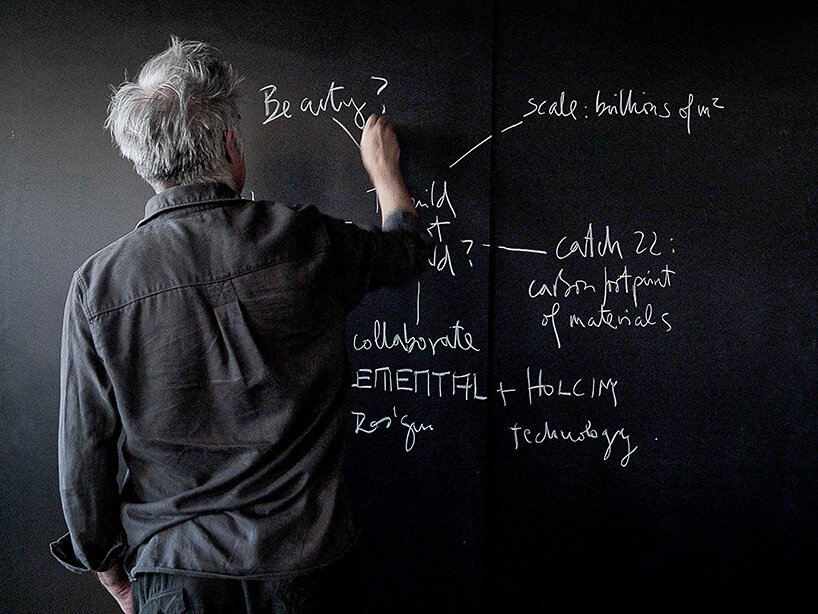 Beauty?
scale: billions of m²
build
?
catch 22:
carbon footprint
of materials
collaborate
EMENTAL + HOLCIM
Design
technology.